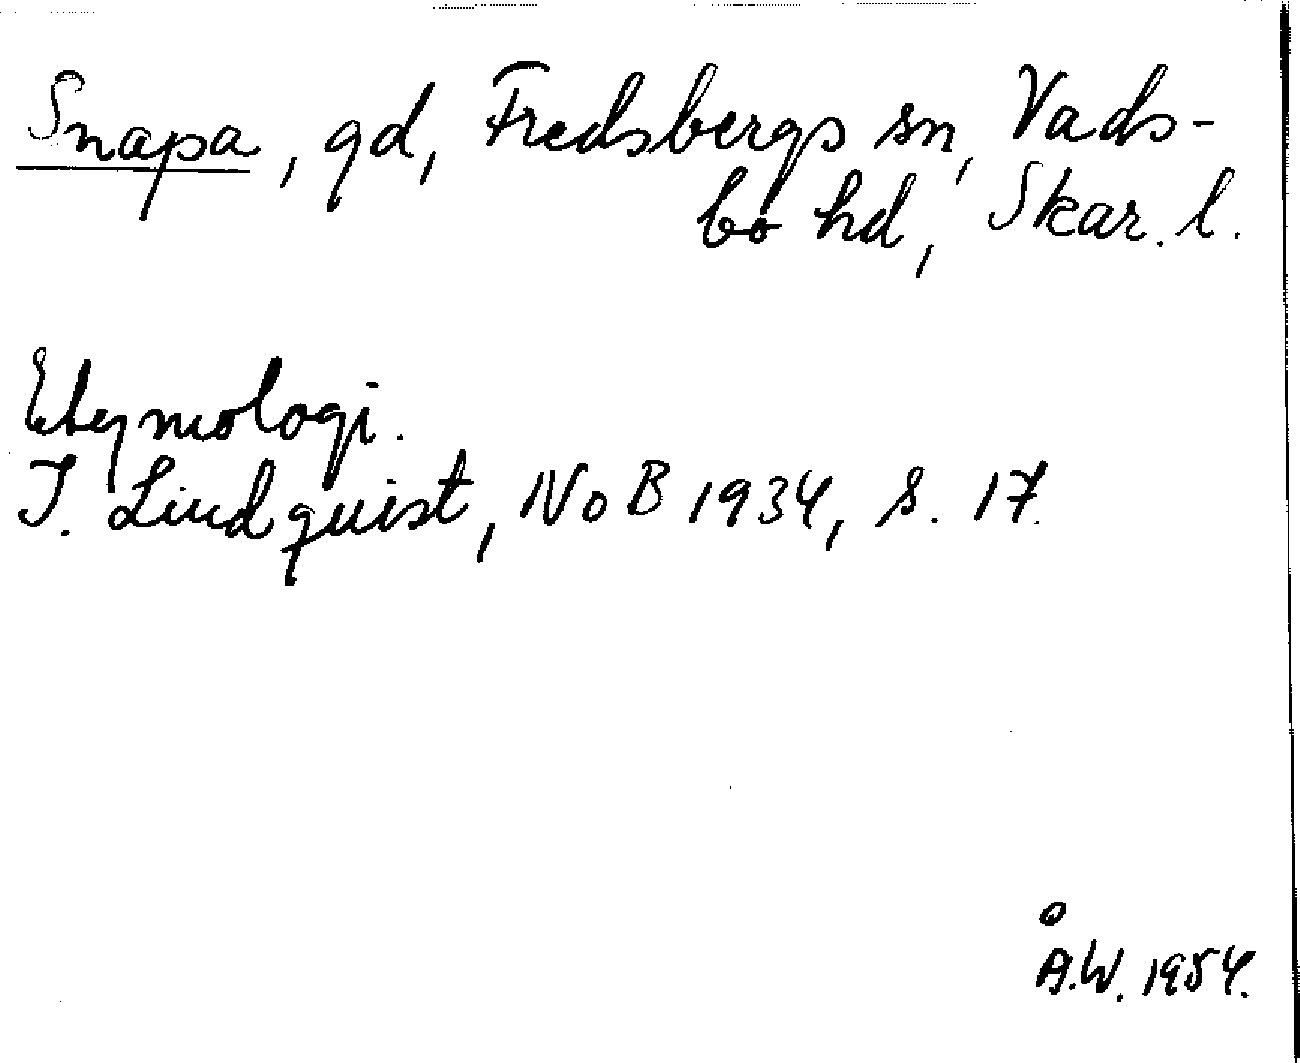 Snapa, gd, Fredsbergs sn, Vads-
bo hd, Skar. l.
Etymologi.
I. Lindquist, NoB 1934, s. 17.
Å.W. 1954.